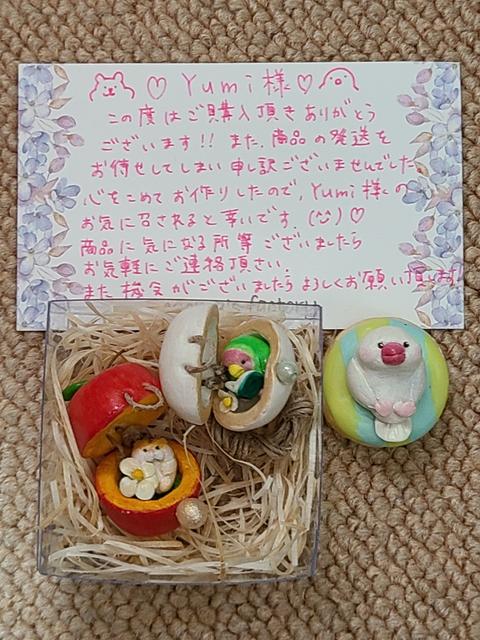 Yumi様
この度はご購入頂きありがとう
ございます!! また、商品の発送を
お待せしてしまい申し訳ございませんでした。
心をこめてお作りしたので、Yumi様の
お気に召されると幸いです。(¨)♡
商品に気になる所等ございましたら
お気軽にご連絡頂さい。
また機会がございましたらよろしくお願い頂します!